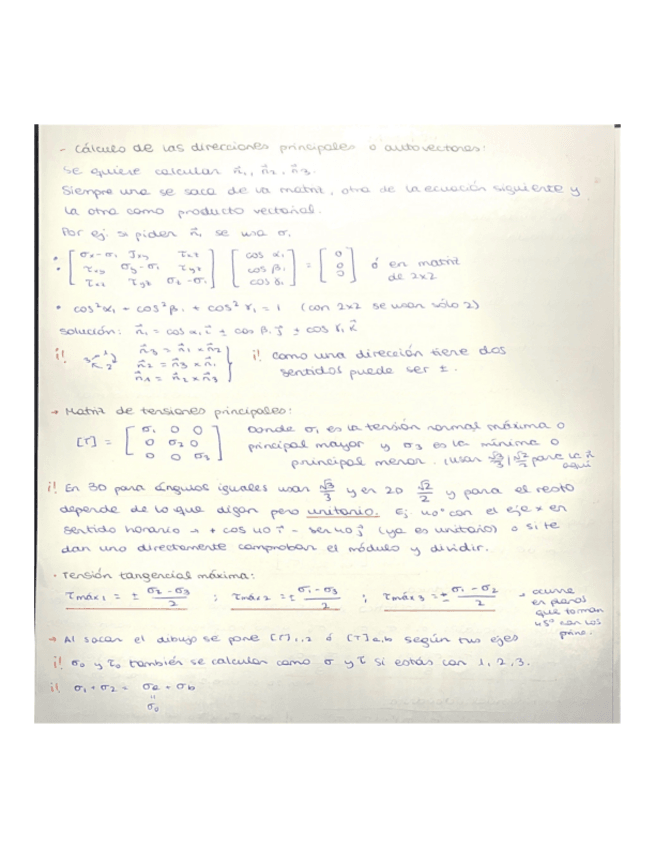 - Cálculo de las direcciones principales o autovectores:
Se quiere calcular n⃗₁, n⃗₂, n⃗₃.
Siempre una se saca de la matriz, otra de la ecuación siguiente y
la otra como producto vectorial.
Por ej: si piden n⃗₁ se usa σ₁
[σx-σ₁ τxy τxz] [cos α₁] = [0]
[τxy σy-σ₁ τyz] [cos β₁] = [0] ó en matriz
[τxz τyz σz-σ₁] [cos γ₁] = [0] de 2x2
• cos²α₁ + cos²β₁ + cos²γ₁ = 1 (con 2x2 se usan sólo 2)
Solución: n⃗₁ = cos α₁ i⃗ ± cos β₁ j⃗ ± cos γ₁ k⃗
¡! 3 1 2 n⃗₃ = n⃗₁ x n⃗₂ ¡! Como una dirección tiene dos
n⃗₂ = n⃗₃ x n⃗₁ sentidos puede ser ±.
n⃗₁ = n⃗₂ x n⃗₃
→ Matriz de tensiones principales:
[σ₁ 0 0] Donde σ₁ es la tensión normal máxima o
[T] = [0 σ₂ 0] principal mayor y σ₃ es la mínima o
[0 0 σ₃] principal menor. (usar √3/3 | √2/2 para la n⃗ aquí
¡! En 3D para ángulos iguales usar √3/3 y en 2D √2/2 y para el resto
depende de lo que digan pero unitario. Ej: 40° con el eje x en
sentido horario → + cos 40 i⃗ - sen 40 j⃗ (ya es unitario) o si te
dan uno directamente comprobar el módulo y dividir.
· Tensión tangencial máxima:
τmáx₁ = ± σ₂-σ₃/2 ; τmáx₂ = ± σ₁-σ₃/2 ; τmáx₃ = ± σ₁-σ₂/2 → ocurre
en planos
que forman
45° con los
princ.
→ Al sacar el dibujo se pone [T]₁,₂ ó [T]a,b según tus ejes
¡! σ₀ y τ₀ también se calculan como σ y τ si estás con 1, 2, 3.
¡! σ₁ + σ₂ = σa + σb
=
σ₀